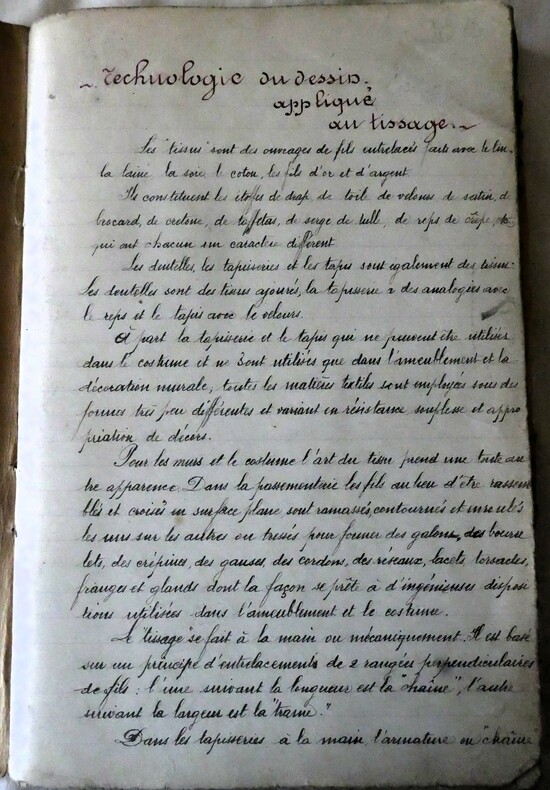 ~ Technologie du dessin.
appliqué
au tissage. ~
Les "tissus" sont des ouvrages de fils entrelacés faits avec le lin
la laine la soie le coton, les fils d'or et d'argent
Ils constituent les étoffes de drap, de toile de velours de satin, de
brocard, de cretone, de taffetas, de serge de tulle, de reps de crêpe etc
qui ont chacun un caractère différent
Les dentelles, les tapisseries et les tapis sont également des tissus.
Les dentelles sont des tissus ajourés, la tapisserie a des analogies avec
le reps et le tapis avec le velours.
A part la tapisserie et le tapis qui ne peuvent être utilisés
dans le costume et ne sont utilisés que dans l'ameublement et la
décoration murale, toutes les matières textiles sont employés sous des
formes très peu différentes et variant en résistance, souplesse et appro
priation de décors.
Pour les murs et le costume l'art du tissu prend une toute au
tre apparence. Dans la passementerie les fils au lieu d'être rassem
blés et croisés en surface plane sont ramassés, contournés et enroulés
les uns sur les autres ou tressés pour former des galons, des bourre
lets, des crépines, des ganses, des cordons, des réseaux, lacets torsades,
franges et glands dont la façon se prête à d'ingénieuses disposi
tions utilisées dans l'ameublement et le costume.
Le "tissage" se fait à la main ou mécaniquement. Il est basé
sur un principe d'entrelacements de 2 rangées perpendiculaires
de fils : l'une suivant la longueur est la "chaîne", l'autre
suivant la largeur est la "trame."
Dans les tapisseries à la main, l'armature ou "chaîne"